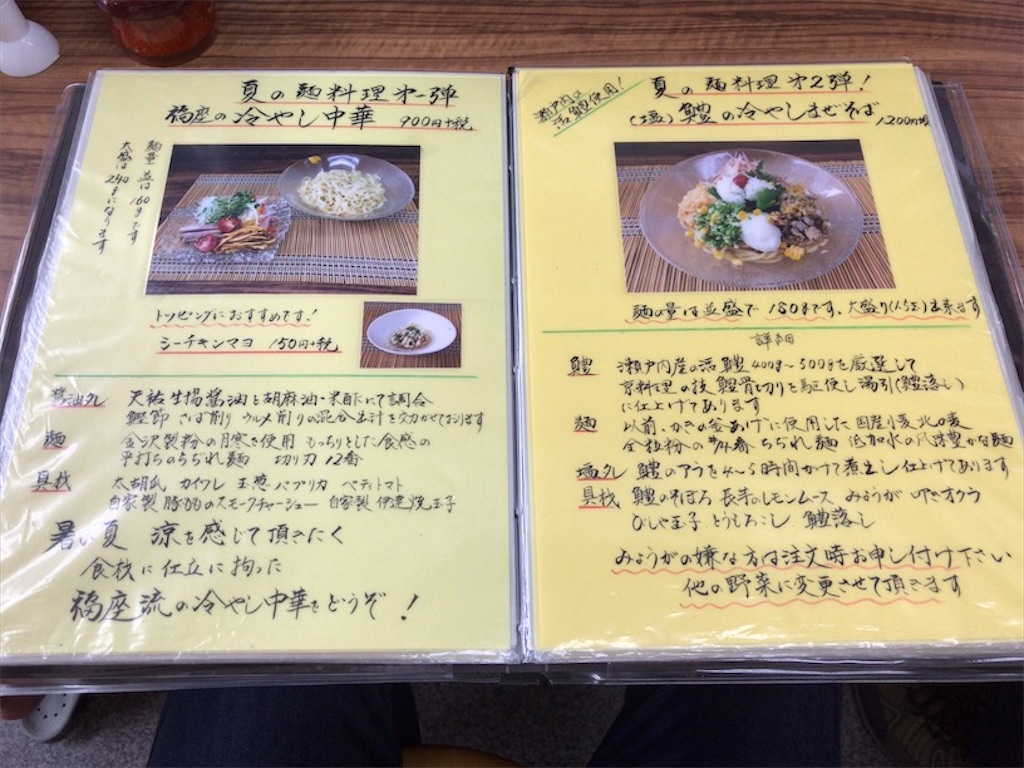 夏の麺料理第一弾
福座の冷やし中華 900円+税
麺量 並は160gです
大盛は240gになります
トッピングにおすすめです!
シーチキンマヨ 150円+税
醤油ダレ 天祐生揚醤油と胡麻油・米酢にて調合
鰹節 さば削り ウルメ削りの混合出汁を交わがせております
麺 金沢製粉の月寒を使用 もっちりとした食感の
平打ちのちぢれ麺 切り刃12番
具材 大胡瓜 カイワレ 玉葱 パプリカ ペティトマト
自家製豚もものスモークチャーシュー 自家製伊達焼玉子
暑い夏 涼を感じて頂きたく
食材に仕立に拘った
福座流の冷やし中華をどうぞ!
瀬戸内の
活鱧使用!
夏の麺料理第2弾!
(塩)鱧の冷やしまぜそば 1200円+税
麺の量は並盛で180gです、大盛り(1.5玉)出来ます
詳細
鱧 瀬戸内産の活鱧400g〜500gを厳選して
京料理の技 鱧骨切りを駆使し湯引(鱧落し)
に仕上げてあります
麺 以前、かきの釜あげに使用した国産小麦 北の麦
全粒粉の#14番 ちぢれ麺 低加水の風味豊かな麺
塩ダレ 鱧のアラを4〜5時間かけて煮出し仕上げてあります
具材 鱧のそぼろ 長芋のレモンムース みょうが 叩きオクラ
びしゃ玉子 とうもろこし 鱧落し
みょうがの嫌な方は注文時お申し付け下さい
他の野菜に変更させて頂きます